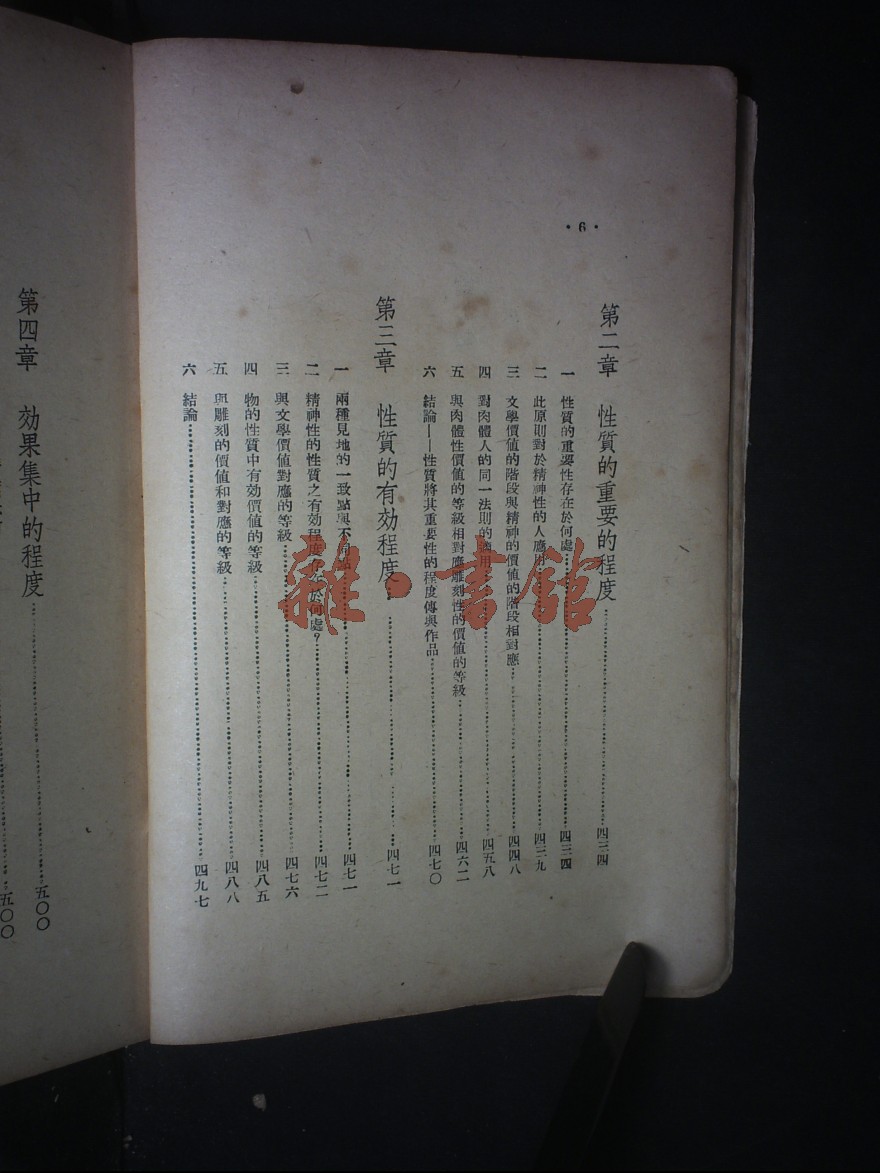 ·6·
第二章 性質的重要的程度……四三四
一 性質的重要性存在於何處……四三四
二 此原則對於精神性的人應用……四三九
三 文學價値的階段與精神的價値的階段相對應……四四八
四 對肉體人的同一法則的適用……四五八
五 與肉體性價値的等級相對應雕刻性的價値的等級……四六二
六 結論——性質將其重要性的程度傳與作品……四七〇
第三章 性質的有効程度……四七一
一 兩種見地的一致點與不同點……四七一
二 精神性的性質之有効程度存在於何處？……四七二
三 與文學價値對應的等級……四七六
四 物的性質中有効價値的等級……四八五
五 與雕刻的價値和對應的等級……四八八
六 結論……四九七
第四章 効果集中的程度……五〇〇
五〇〇
雜·書館